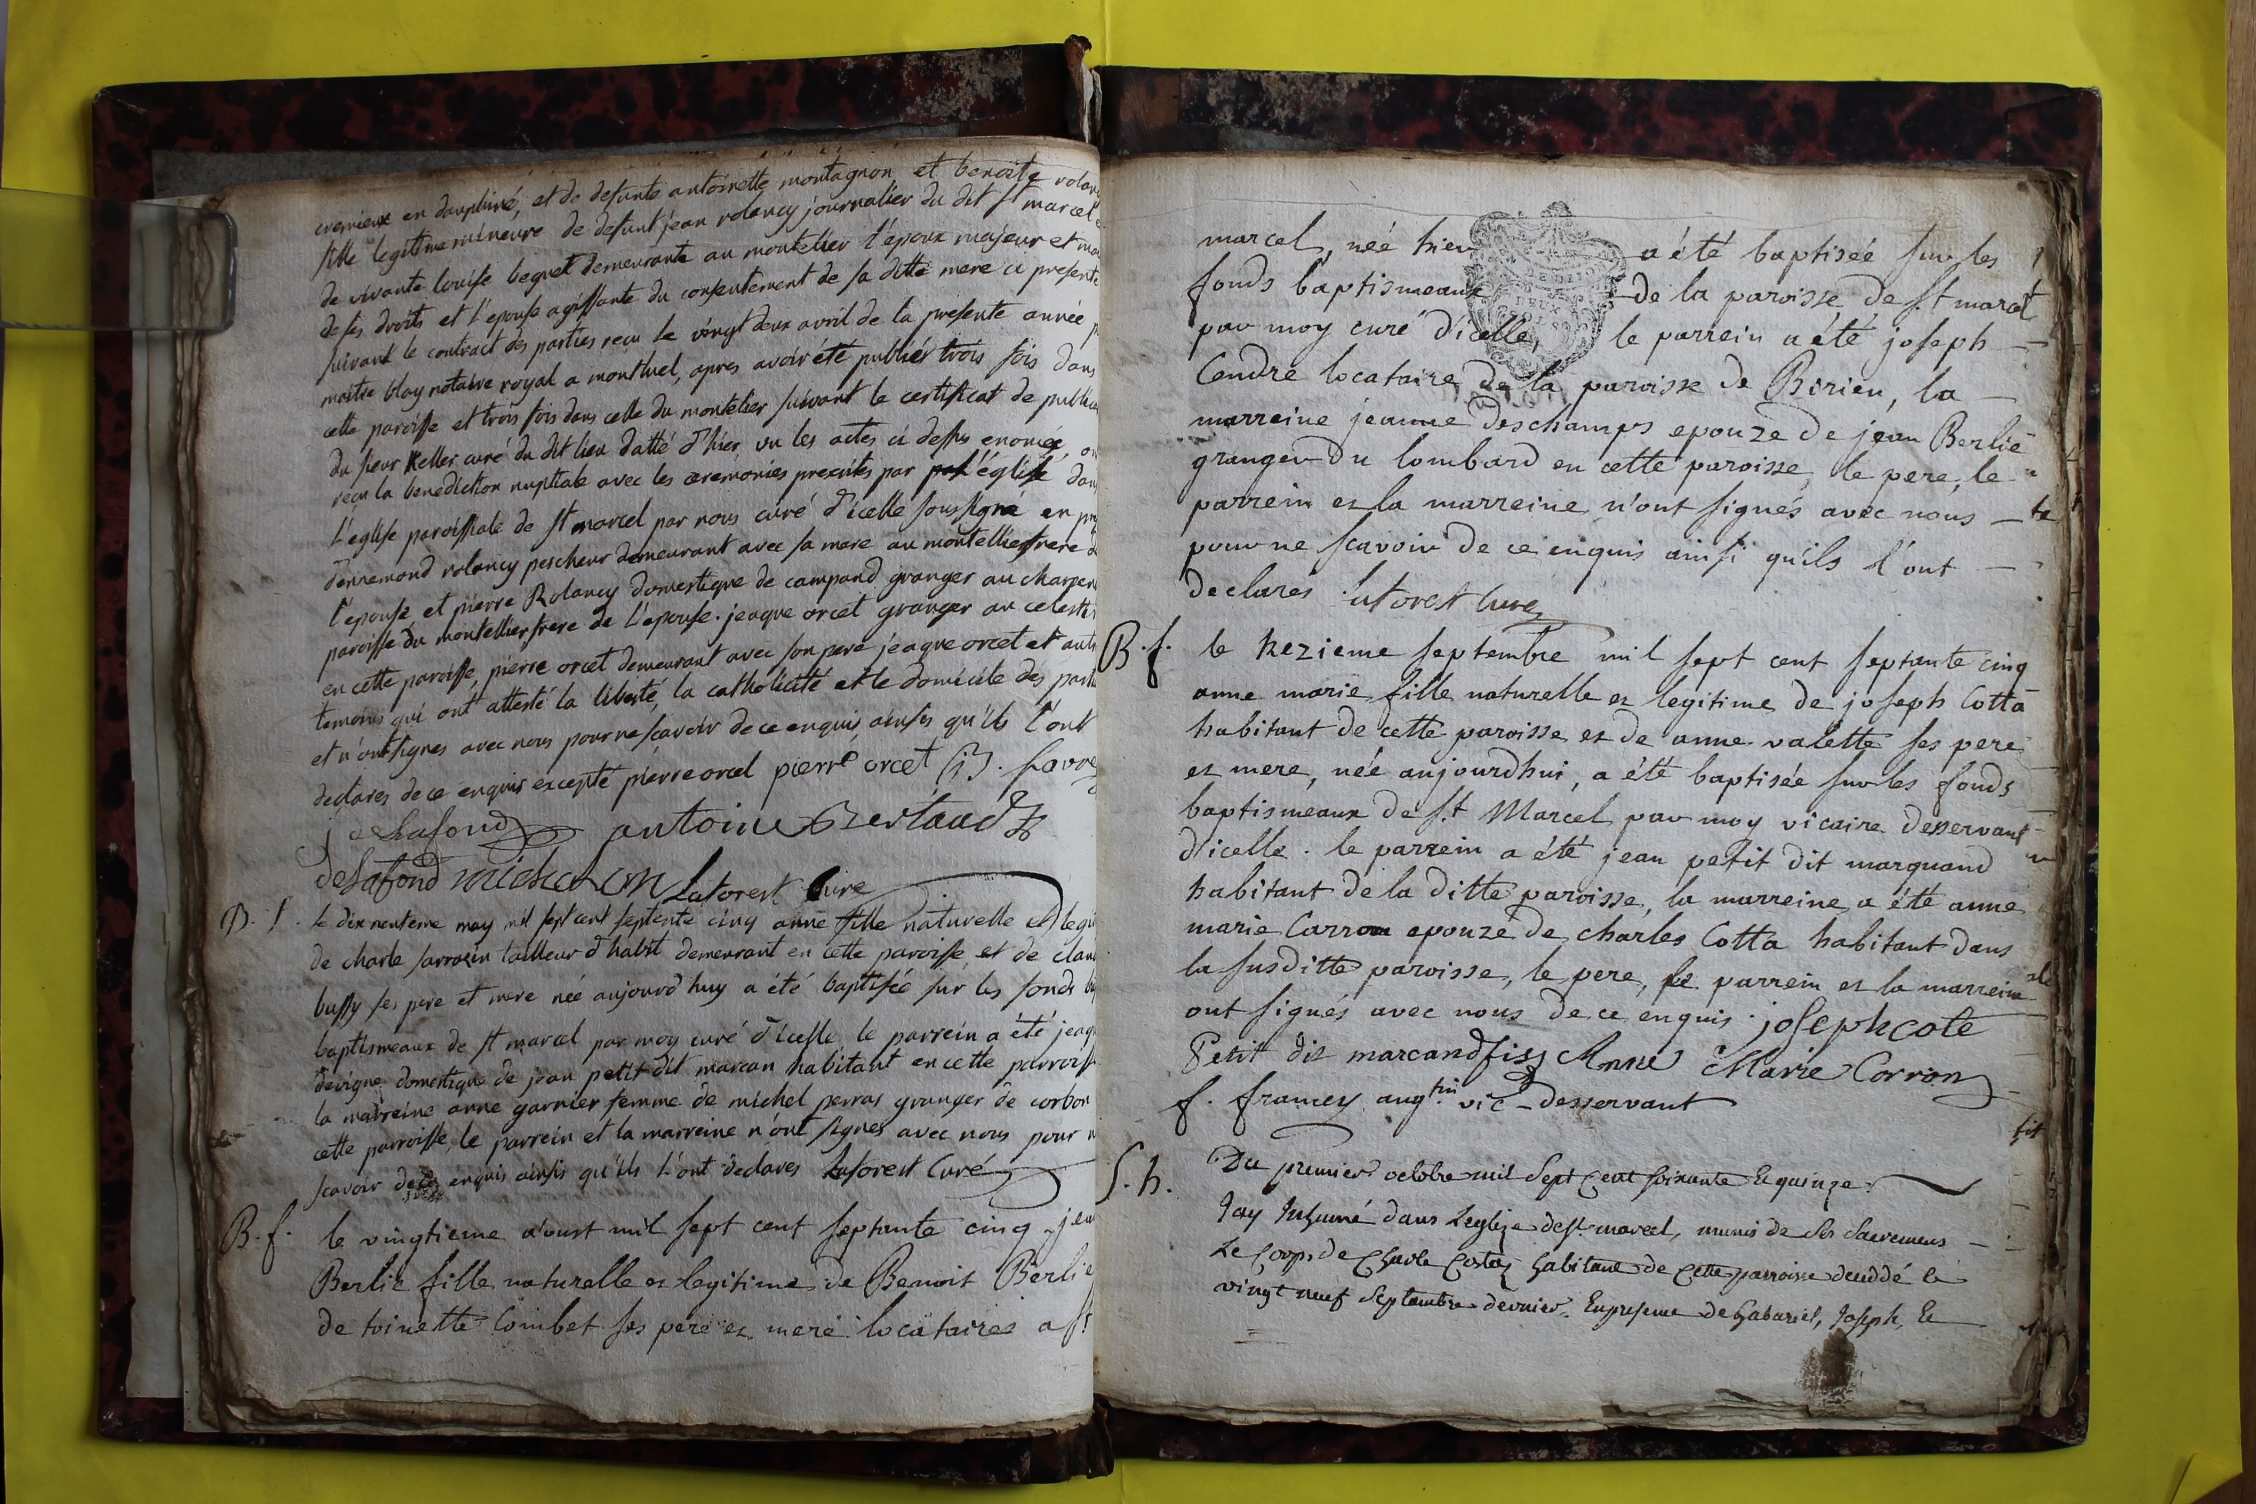 cremieux en dauphiné, et de defunte antoinette montagnon et benoite rolan
fille legitime mineure de defunt jean rolancy journalier du dit st marcel
de vivante louise beguet demeurante au montelier l'epoux majeur et mai
de ses droits et l'epouse agissante du consentement de sa ditte mere ci presente
suivant le contract des parties recu le vingt deux avril de la presente année p
maitre blay notaire royal a montluel, apres avoir été publiés trois fois dans
cette paroisse et trois fois dans celle du montelier suivant le certificat de publica
du sieur Keller curé du dit lieu datté d'hier, vu les actes ci dessus enoncés, on
recu la benediction nuptiale avec les ceremonies prescrites par l'église dans
L'eglise paroissiale de st marcel par nous curé d'icelle soussigné en pre
d'ennemond rolancy pescheur demeurant avec sa mere au montellier frere de
l'epouse et pierre Rolancy domestique de campand granger au charpen
paroisse du montellier frere de l'epouse. jeaque orcet granger au celestin
en cette paroisse, pierre orcet demeurant avec son pere jeaque orcet et autr
temoins qui ont attesté la liberté, la catholicité et le domicile des parti
et n'ont signés avec nous pour ne scavoir de ce enquis ainsis qu'ils l'ont
declares de ce enquis excepté pierre orcet pierre orcet favre
delafond antoine Bertaud
delafond michalon Laforest Curé
B. f. le dix neuvieme may mil sept cent septente cinq anne fille naturelle et legit
de charle sarrasin tailleur d'habit demeurant en cette paroisse et de clau
bussy ses pere et mere née aujourd'huy a été baptisée sur les fonds b
baptismeaux de st marcel par moy curé d'icelle, le parrein a été jeaq
devigne domestique de jean petit dit marcan habitant en cette parroisse
la marreine anne garnier femme de michel perras granger de corbon
cette parroisse, le parrein et la marreine n'ont signés avec nous pour n
scavoir de ce enquis ainsis qu'ils l'ont declares Laforest Curé
B. f. le vingtieme aoust mil sept cent septante cinq jea
Berlie fille naturelle et legitime de Benoit Berlie
de toinette Combet ses pere et mere locataires a st
marcel, née hier a été baptisée sur les
fonds baptismeaux de la paroisse de st marcel
par moy curé d'icelle, le parrein a été joseph
Condre locataire de la paroisse de Birieu, la
marreine jeanne deschamps epouze de jean Berlie
granger du lombard en cette paroisse, le pere, le
parrein et la marreine n'ont signés avec nous
pour ne scavoir de ce enquis ainsi qu'ils l'ont
declarés Laforest Curé
B. f. le treizieme septembre mil sept cent septante cinq
anne marie fille naturelle et legitime de joseph Cotta
habitant de cette paroisse et de anne valette ses pere
et mere, née aujourdhui, a été baptisée sur les fonds
baptismeaux de st Marcel par moy vicaire desservant
d'icelle. le parrein a été jean petit dit marquand
habitant de la ditte paroisse, la marreine a été anne
marie Carron epouze de charles Cotta habitant dans
la susditte paroisse, le pere, le parrein et la marreine
ont signés avec nous de ce enquis. joseph cote
Petit dit marcand fis Anne Marie Corron
f. francey augtin vic desservant
S. h. Du premier octobre mil Sept Cent soixante Et quinze.
Jay Inhumé dans Leglize de st marcel, munis de Ses Sacremens
Le Corps de Charle Costaz habitant de Cette parroisse deceddé le
vingt neuf Septembre dernier. En presence de Gabariel, Joseph, Et